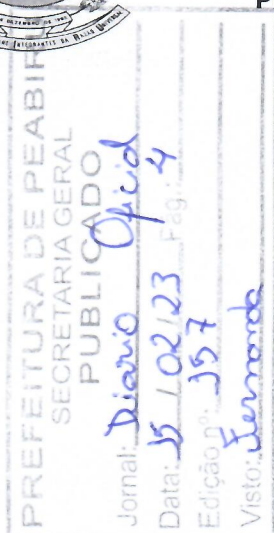 PREFEITURA DE PEABIR
SECRETARIA GERAL
PUBLICADO
Jornal: Diario Oficial
Data: 15 / 02 / 23 Pág.: 4
Edição nº: 157
Visto: Fernanda